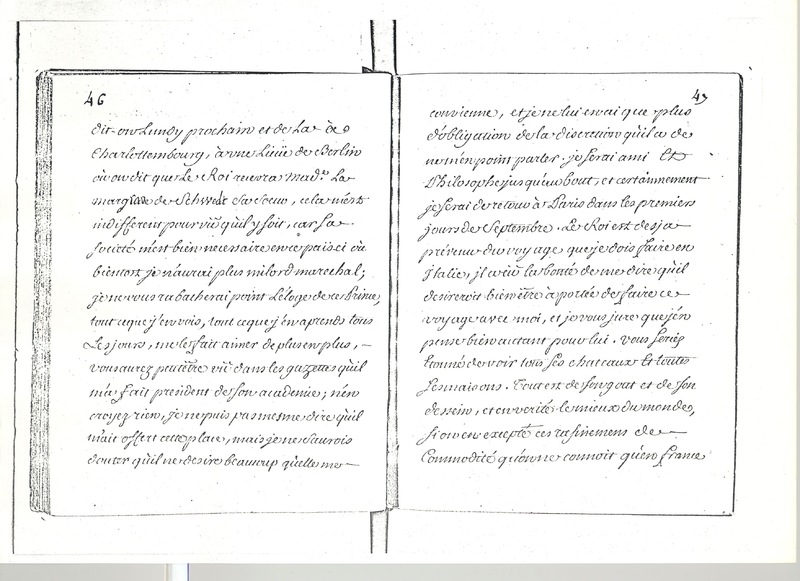 46
dit-on Lundy prochain et de La à
Charlottembourg, à une Liüe de Berlin
où on dit que Le Roi recevra Mad.e La
margrave de Schwedt sa Soeur, cela m'est
indifferent pourvû qu'il y soit, car sa
societé m'est bien necessaire en ce païs ci où
bientost je n'aurai plus milord marechal;
je ne vous rabacherai point L'eloge de ce Prince,
tout ce que j'en vois, tout ce que j'en aprends tous
Les jours, me le fait aimer de plus en plus,
vous aurez peutètre vû dans les gazetes qu'il
m'a fait president de son academie; n'en
croyez rien, je ne puis pas mesme dire qu'il
m'ait offert cette place, mais je ne saurois
douter qu'il ne desire beaucoup qu'elle me
47
convienne, et je ne lui en ai que plus
d'obligation de la discretion qu'il a de
ne m'en point parler. je serai ami Et
Philosophe jusqu'au bout, et certainnement
je serai de retour à Paris dans les premiers
jours de Septembre. Le Roi est desja
prévenu du voyage que je dois faire en
Italie, il a eû la bonté de me dire qu'il
desireroit bien être à portée de faire ce
voyage avec moi, et je vous jure que j'en
pense bien autant pour lui. vous seriez
étonné de voir tous ses chateaux Et toutes
ses maisons. Tout est de son gout et de son
dessein, et en verité le mieux du monde,
si on en excepte ces rafinemens de
Commodité qu'on ne connoit qu'en france